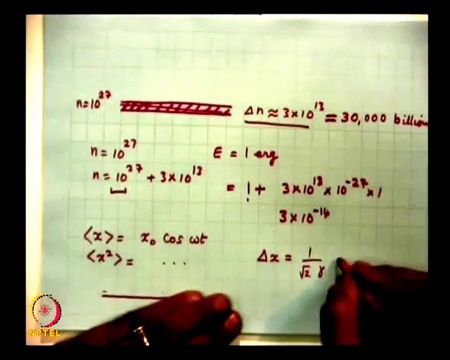 n=10²⁷ Δn ≈ 3×10¹³ = 30,000 billion
n = 10²⁷ E = 1 erg
n = 10²⁷ + 3×10¹³ = 1 + 3×10¹³ × 10⁻²⁷ × 1
3×10⁻¹⁴
⟨x⟩ = x₀ cos ωt
⟨x²⟩ = ... Δx = 1/√2 γ
NPTEL